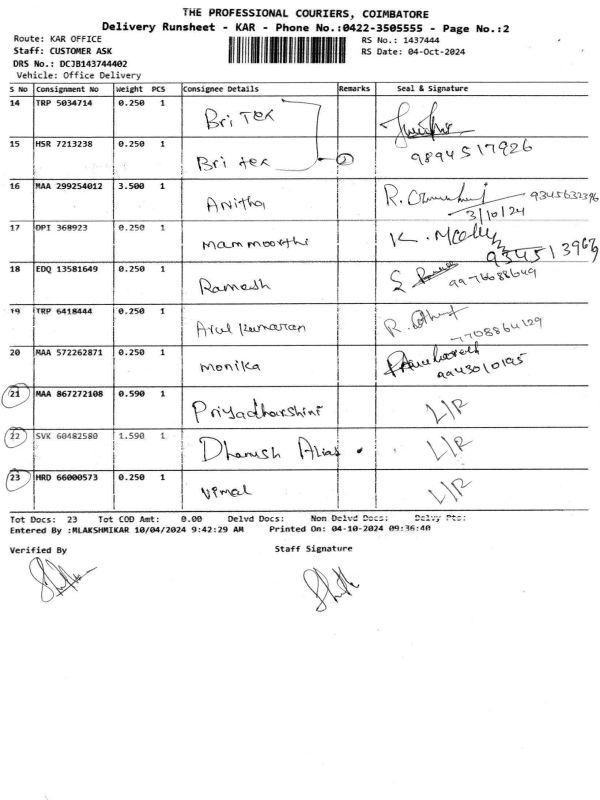 THE PROFESSIONAL COURIERS, COIMBATORE
Delivery Runsheet - KAR - Phone No.:0422-3505555 - Page No.:2
Route: KAR OFFICE RS No.: 1437444
Staff: CUSTOMER ASK RS Date: 04-Oct-2024
DRS No.: DCJB143744402
Vehicle: Office Delivery
S No Consignment No Weight PCS Consignee Details Remarks Seal & Signature
14 TRP 5034714 0.250 1 Bri Tex
15 HSR 7213238 0.250 1 Bri tex 2 9894517926
16 MAA 299254012 3.500 1 Anitha R. 9345632396
3/10/24
17 DPI 368923 0.250 1 mammoorthi K.
9345139
18 EDQ 13581649 0.250 1 Ramesh S 9976688649
19 TRP 6418444 0.250 1 Arul kumaran R.
7708864129
20 MAA 572262871 0.250 1 monika
9943010195
21 MAA 867272108 0.590 1 Priyadharshini L/R
22 SVK 60482580 1.590 1 Dhanush Alias L/R
23 HRD 66000573 0.250 1 vimal L/R
Tot Docs: 23 Tot COD Amt: 0.00 Delvd Docs: Non Delvd Docs: Delvy Pts:
Entered By :MLAKSHMIKAR 10/04/2024 9:42:29 AM Printed On: 04-10-2024 09:36:40
Verified By Staff Signature